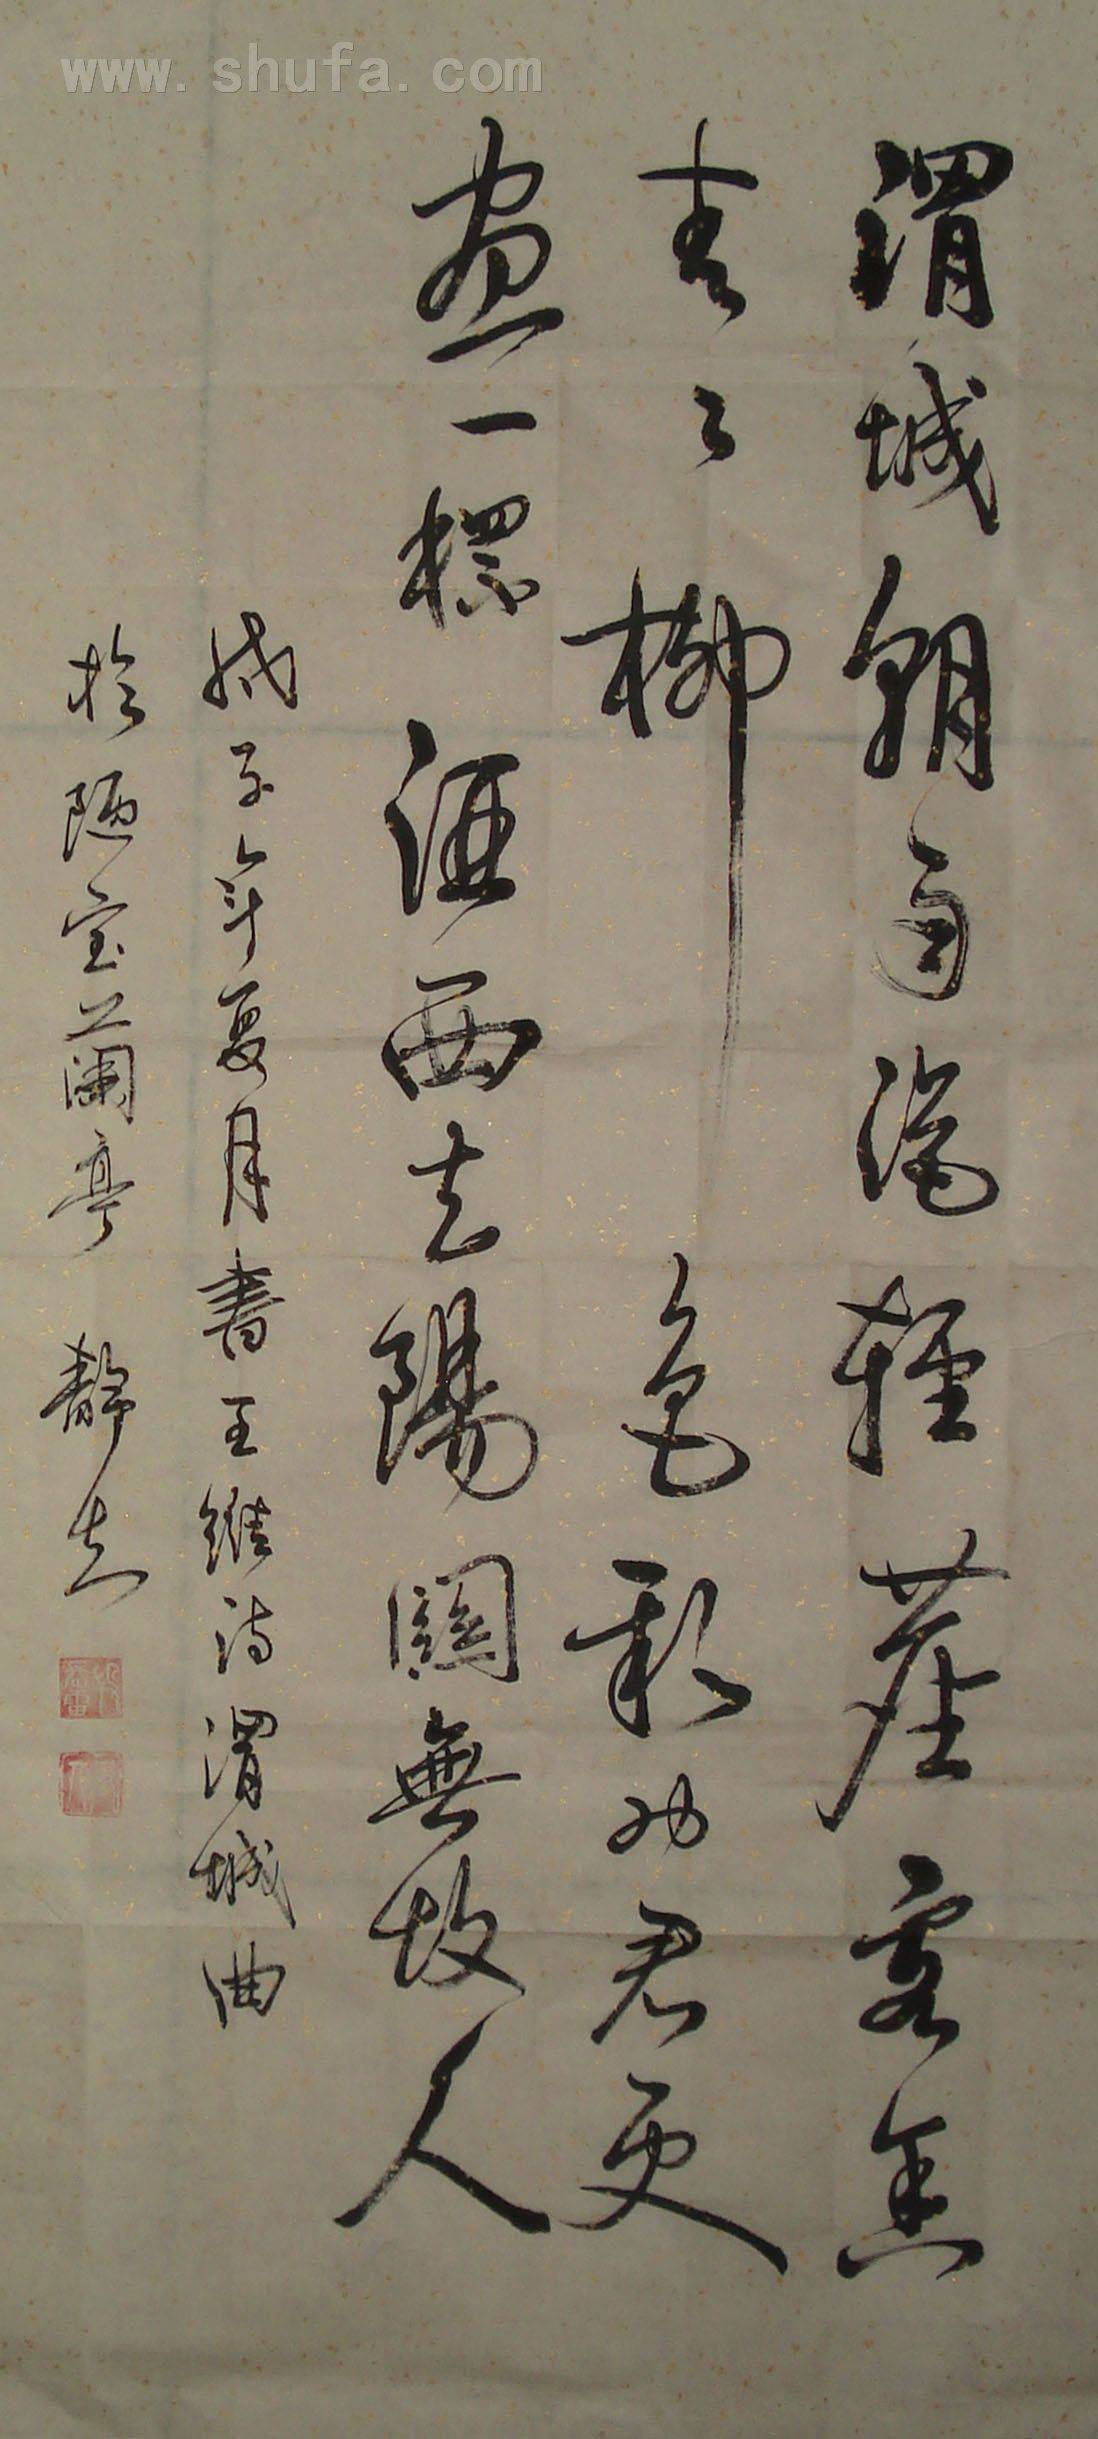 渭城朝雨浥輕塵客舍
青々柳色新勸君更
盡一杯酒西去陽關無故人
戊子年夏月書王維詩渭城曲
於陋室蘭亭 靜
www.shufa.com